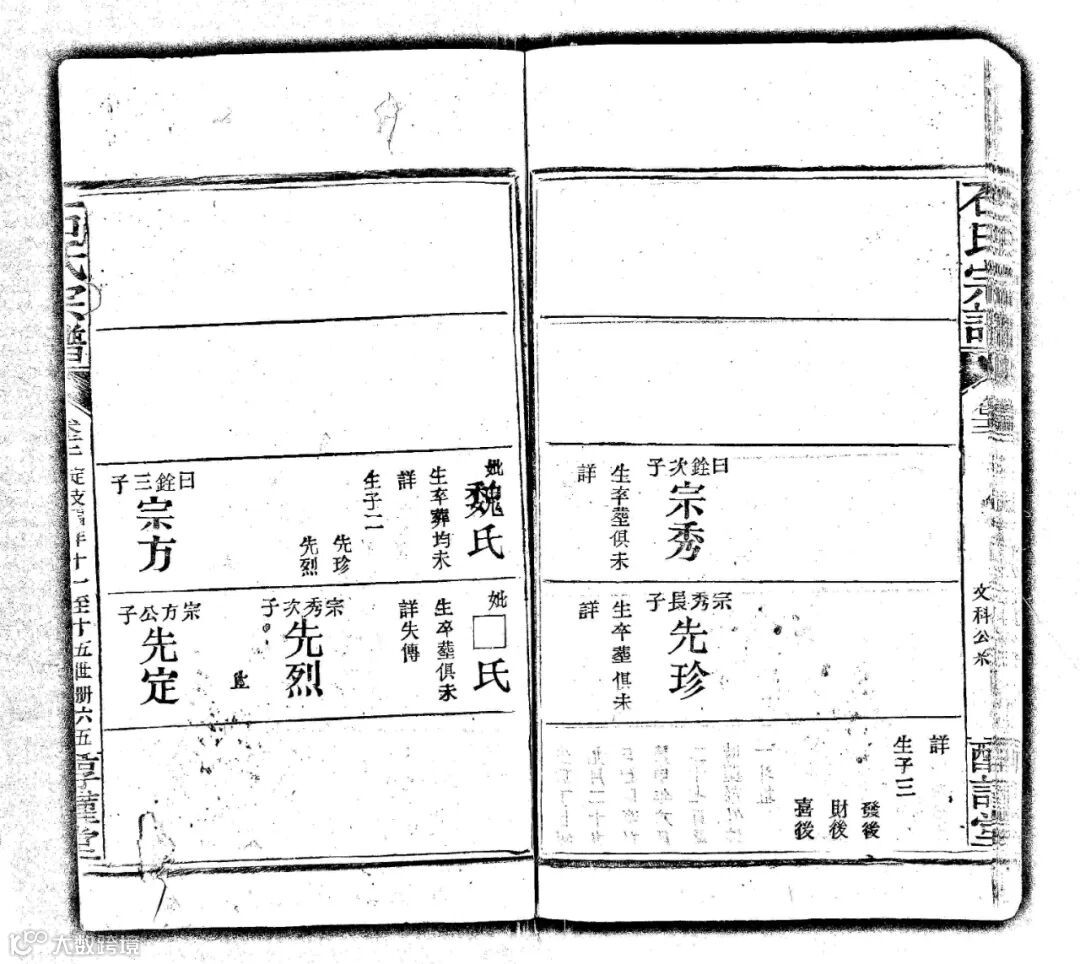 石氏宗譜
卷三
文科公系
曰銓次子
宗秀
生卒塟俱未
詳
宗秀長子
先珍
生卒塟俱未
詳
詳
生子三
發後
財後
喜後
妣
魏氏
生卒葬均未
詳
生子二
先珍
先烈
曰銓三子
宗方
妣
□氏
生卒塟俱未
詳失傳
宗秀次子
先烈
宗方公子
先定
石氏宗譜
十一至十五世册六五
大数跨境